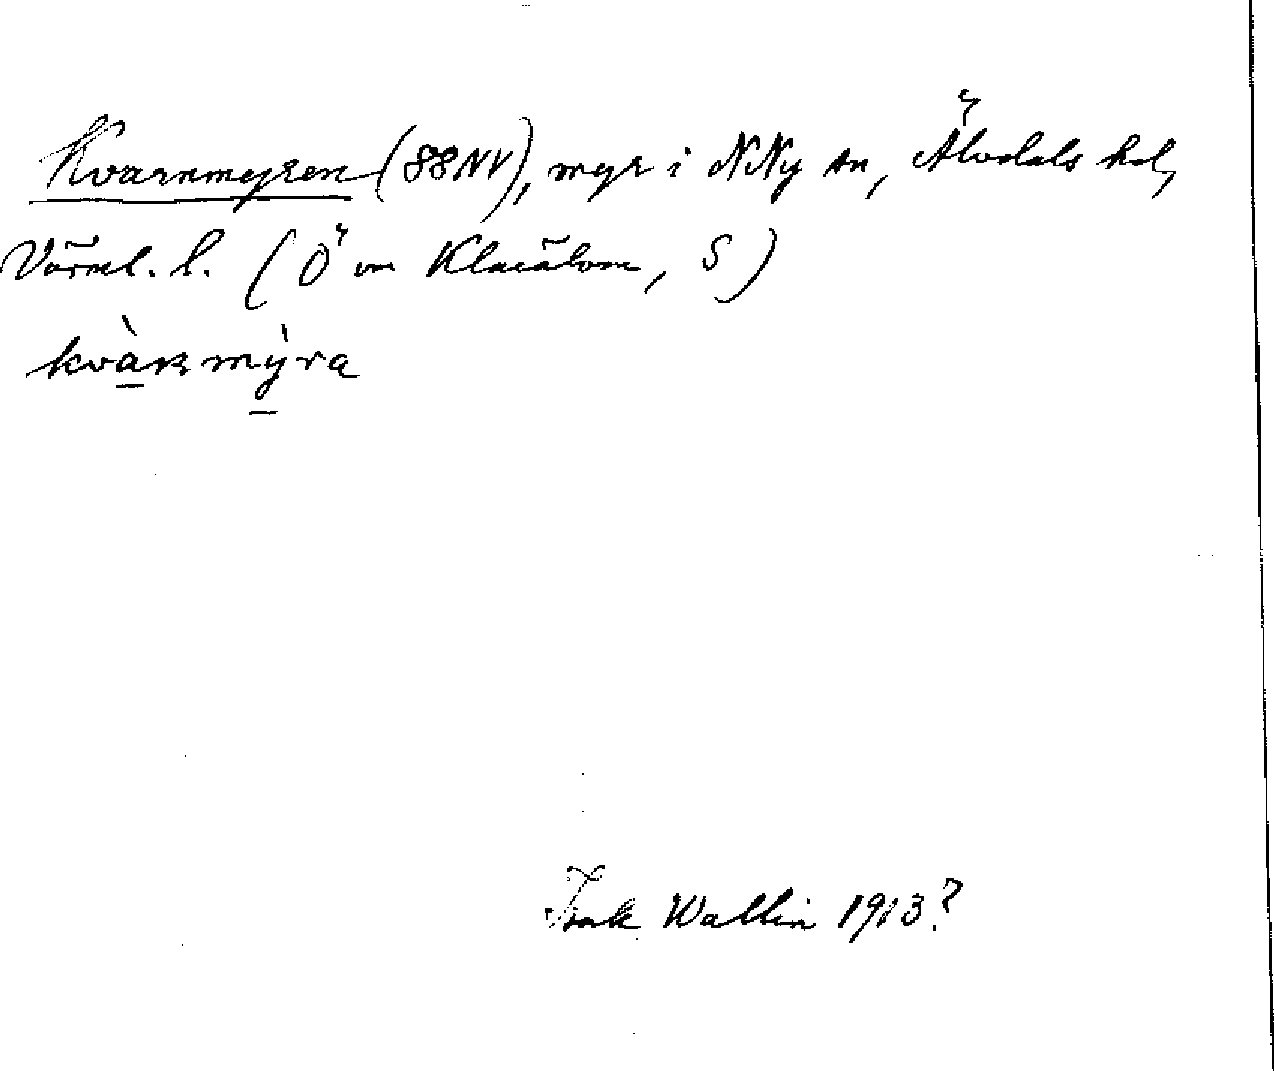 Kvarnmyren (88NV), myr i NNy sn, Älvdals hd,
Värml. l. (Ö om Klarälven, S)
kvànmy̔ra
Isak Wallin 1913?